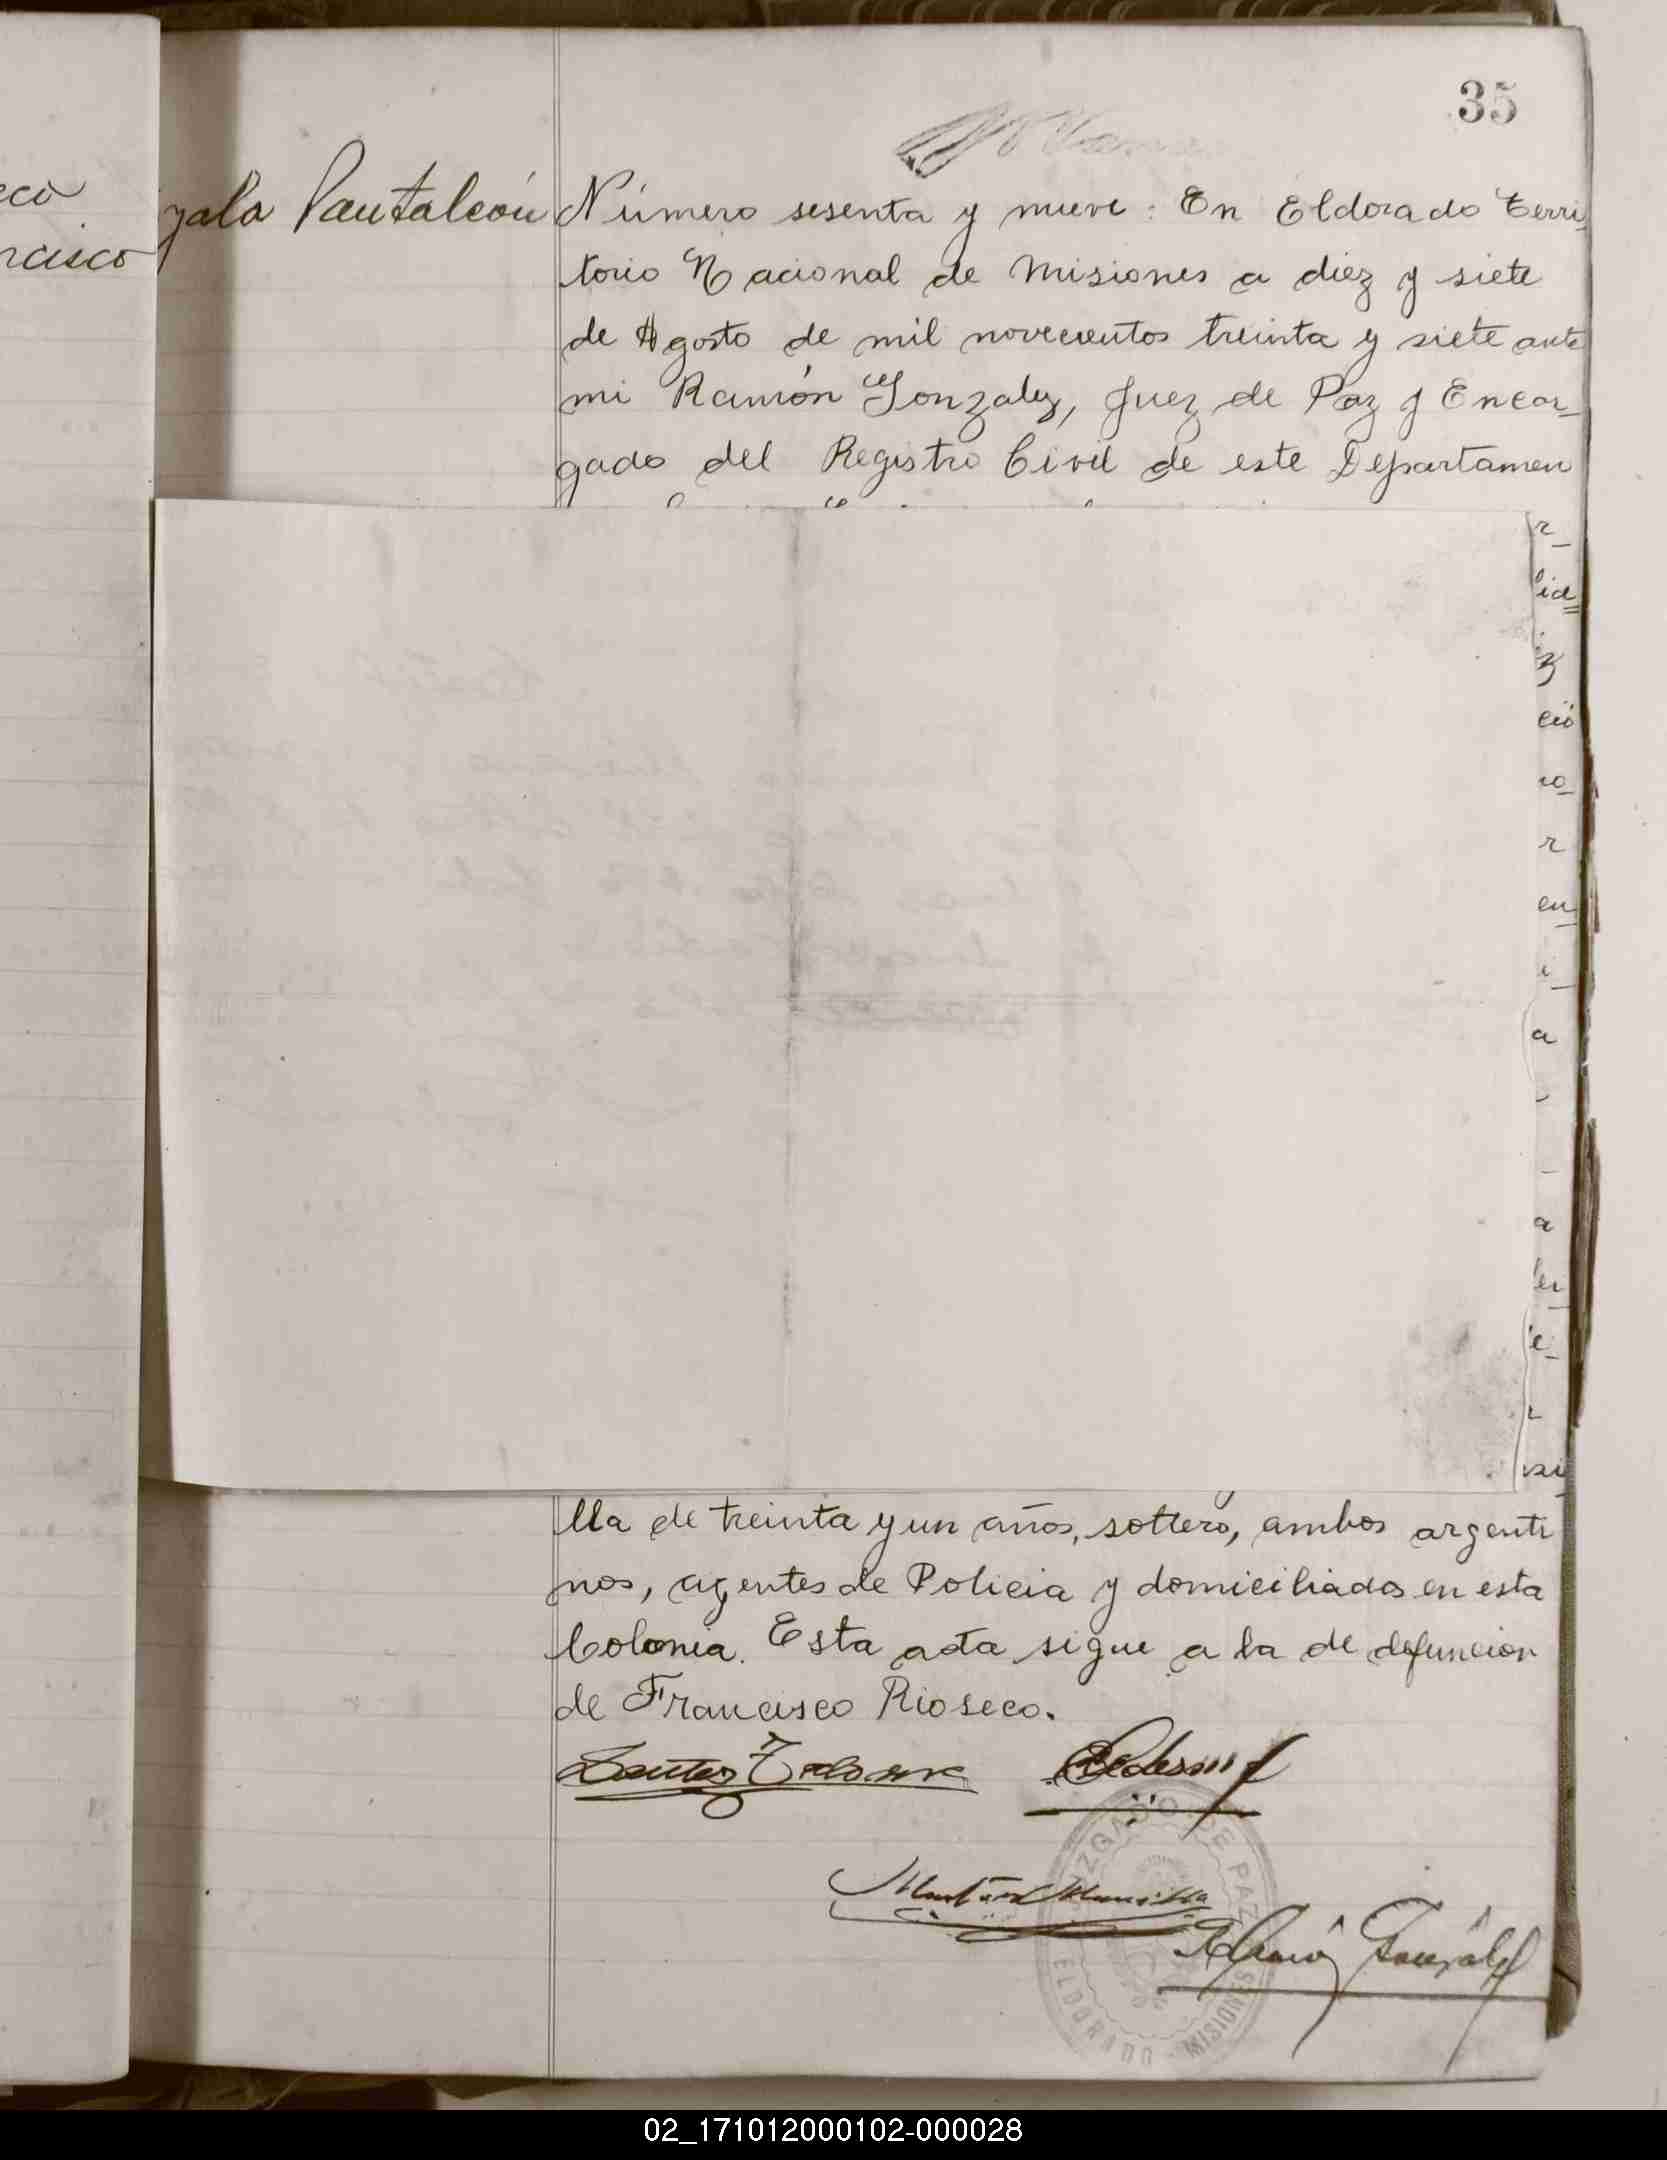 35
eco
rcisco
yala Pantaleón
Número sesenta y nueve: En Eldorado Terri_
torio Nacional de Misiones a diez y siete
de Agosto de mil novecientos treinta y siete ante
mi Ramón Gonzalez, Juez de Paz y Encar_
gado del Registro Civil de este Departamen
r_
lid=
z
ció
ro_
r
en_
i_
a
a
lei_
e_
lla de treinta y un años, soltero, ambos argenti
nos, agentes de Policia y domiciliados en esta
Colonia. Esta acta sigue a la de defuncion
de Francisco Rioseco.
Ledesma
Martin Mansilla
Ramón González
JUZGADO DE PAZ
ELDORADO - MISIONES
02_171012000102-000028